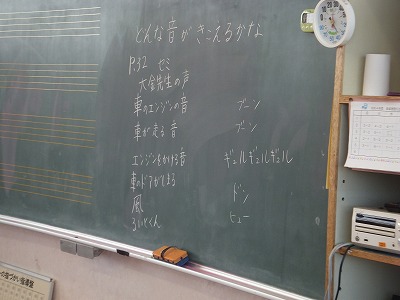 どんな音がきこえるかな
P.32 セミ
大金先生の声
車のエンジンの音 ブーン
車が走る音 ブーン
エンジンをかける音 ギュルギュルギュル
車のドアがしまる ドン
風 ヒュー